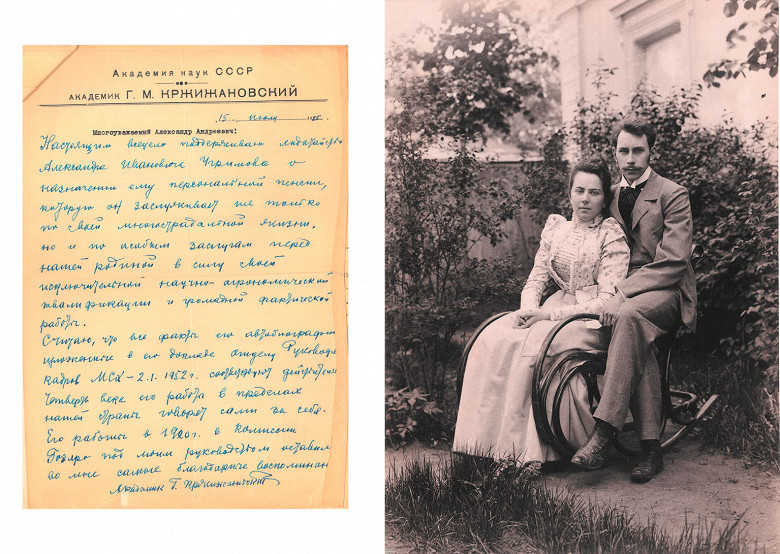 Академия наук СССР
АКАДЕМИК Г. М. КРЖИЖАНОВСКИЙ
15 Июля
Многоуважаемый Александр Андреевич!
Настоящим всецело поддерживаю ходатайство
Александра Ивановича Угримова о
назначении ему персональной пенсии,
которую он заслуживает не только
по своей многострадальной жизни,
но и по особым заслугам перед
нашей родиной в силу своей
исключительной научно-агрономической
квалификации и громадной фактической
работы.
Считаю, что все факты его автобиографии
изложенные в его докладе отделу Руковод
кадров МСХ – 2.1.1952 г. соответствуют действител
Четверть века его работы в пределах
нашей страны говорят сами за себя.
Его работы в 1920 г. в Комиссии
Гоэлро под моим руководством оставили
во мне самые благодарные воспоминан
Академик Г. Кржижановский